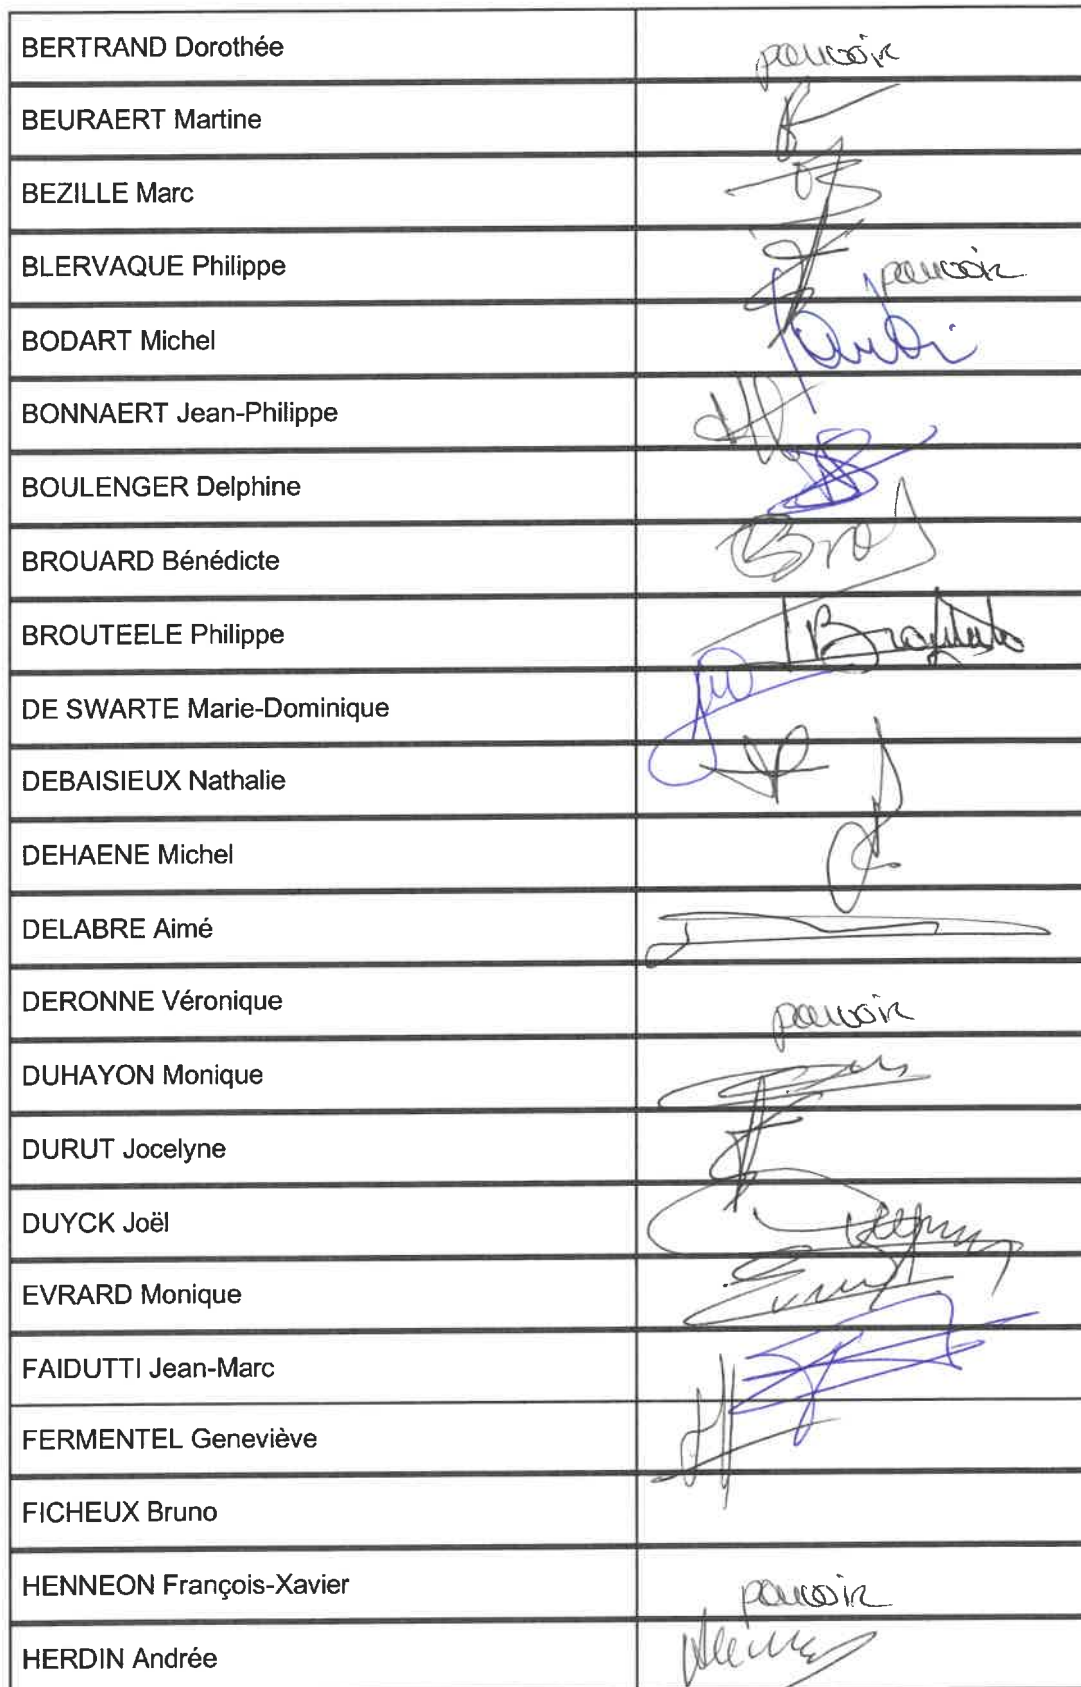 BERTRAND Dorothée pouvoir
BEURAERT Martine
BEZILLE Marc
BLERVAQUE Philippe pouvoir
BODART Michel
BONNAERT Jean-Philippe
BOULENGER Delphine
BROUARD Bénédicte
BROUTEELE Philippe
DE SWARTE Marie-Dominique
DEBAISIEUX Nathalie
DEHAENE Michel
DELABRE Aimé
DERONNE Véronique pouvoir
DUHAYON Monique
DURUT Jocelyne
DUYCK Joël
EVRARD Monique
FAIDUTTI Jean-Marc
FERMENTEL Geneviève
FICHEUX Bruno
HENNEON François-Xavier pouvoir
HERDIN Andrée